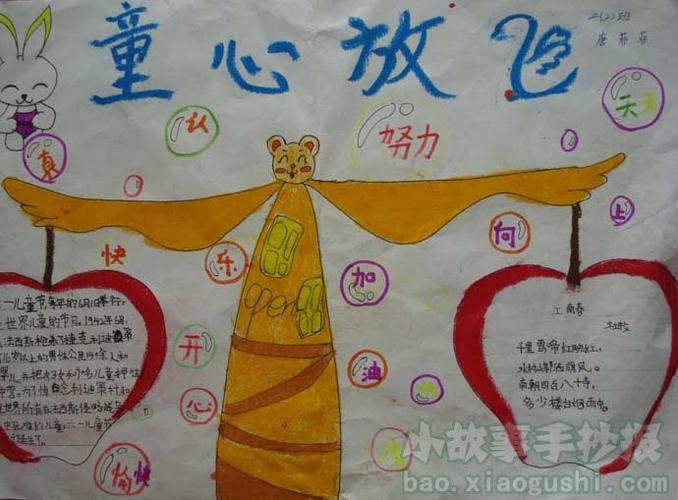 童心放飞
2(2)班
唐
真
认
努力
天天
向
上
快
乐
加
油
开
心
愉快
open
一儿童节,每年的6月1日举行。
世界儿童的节日。1942年6月,
法西斯枪杀了捷克利迪
16岁以上的男性公民140余人和
婴儿,并把妇女和90多名儿童押往
中营。为了悼念利迪策村和
世界所有在法西斯侵略战
中死难的儿童,六一儿童节
诞生了。
江南春
杜牧
千里莺啼 映
水村山郭酒旗风。
南朝四百八十寺,
多少楼台烟雨中。
小故事手抄报
bao.xiaogushi.com